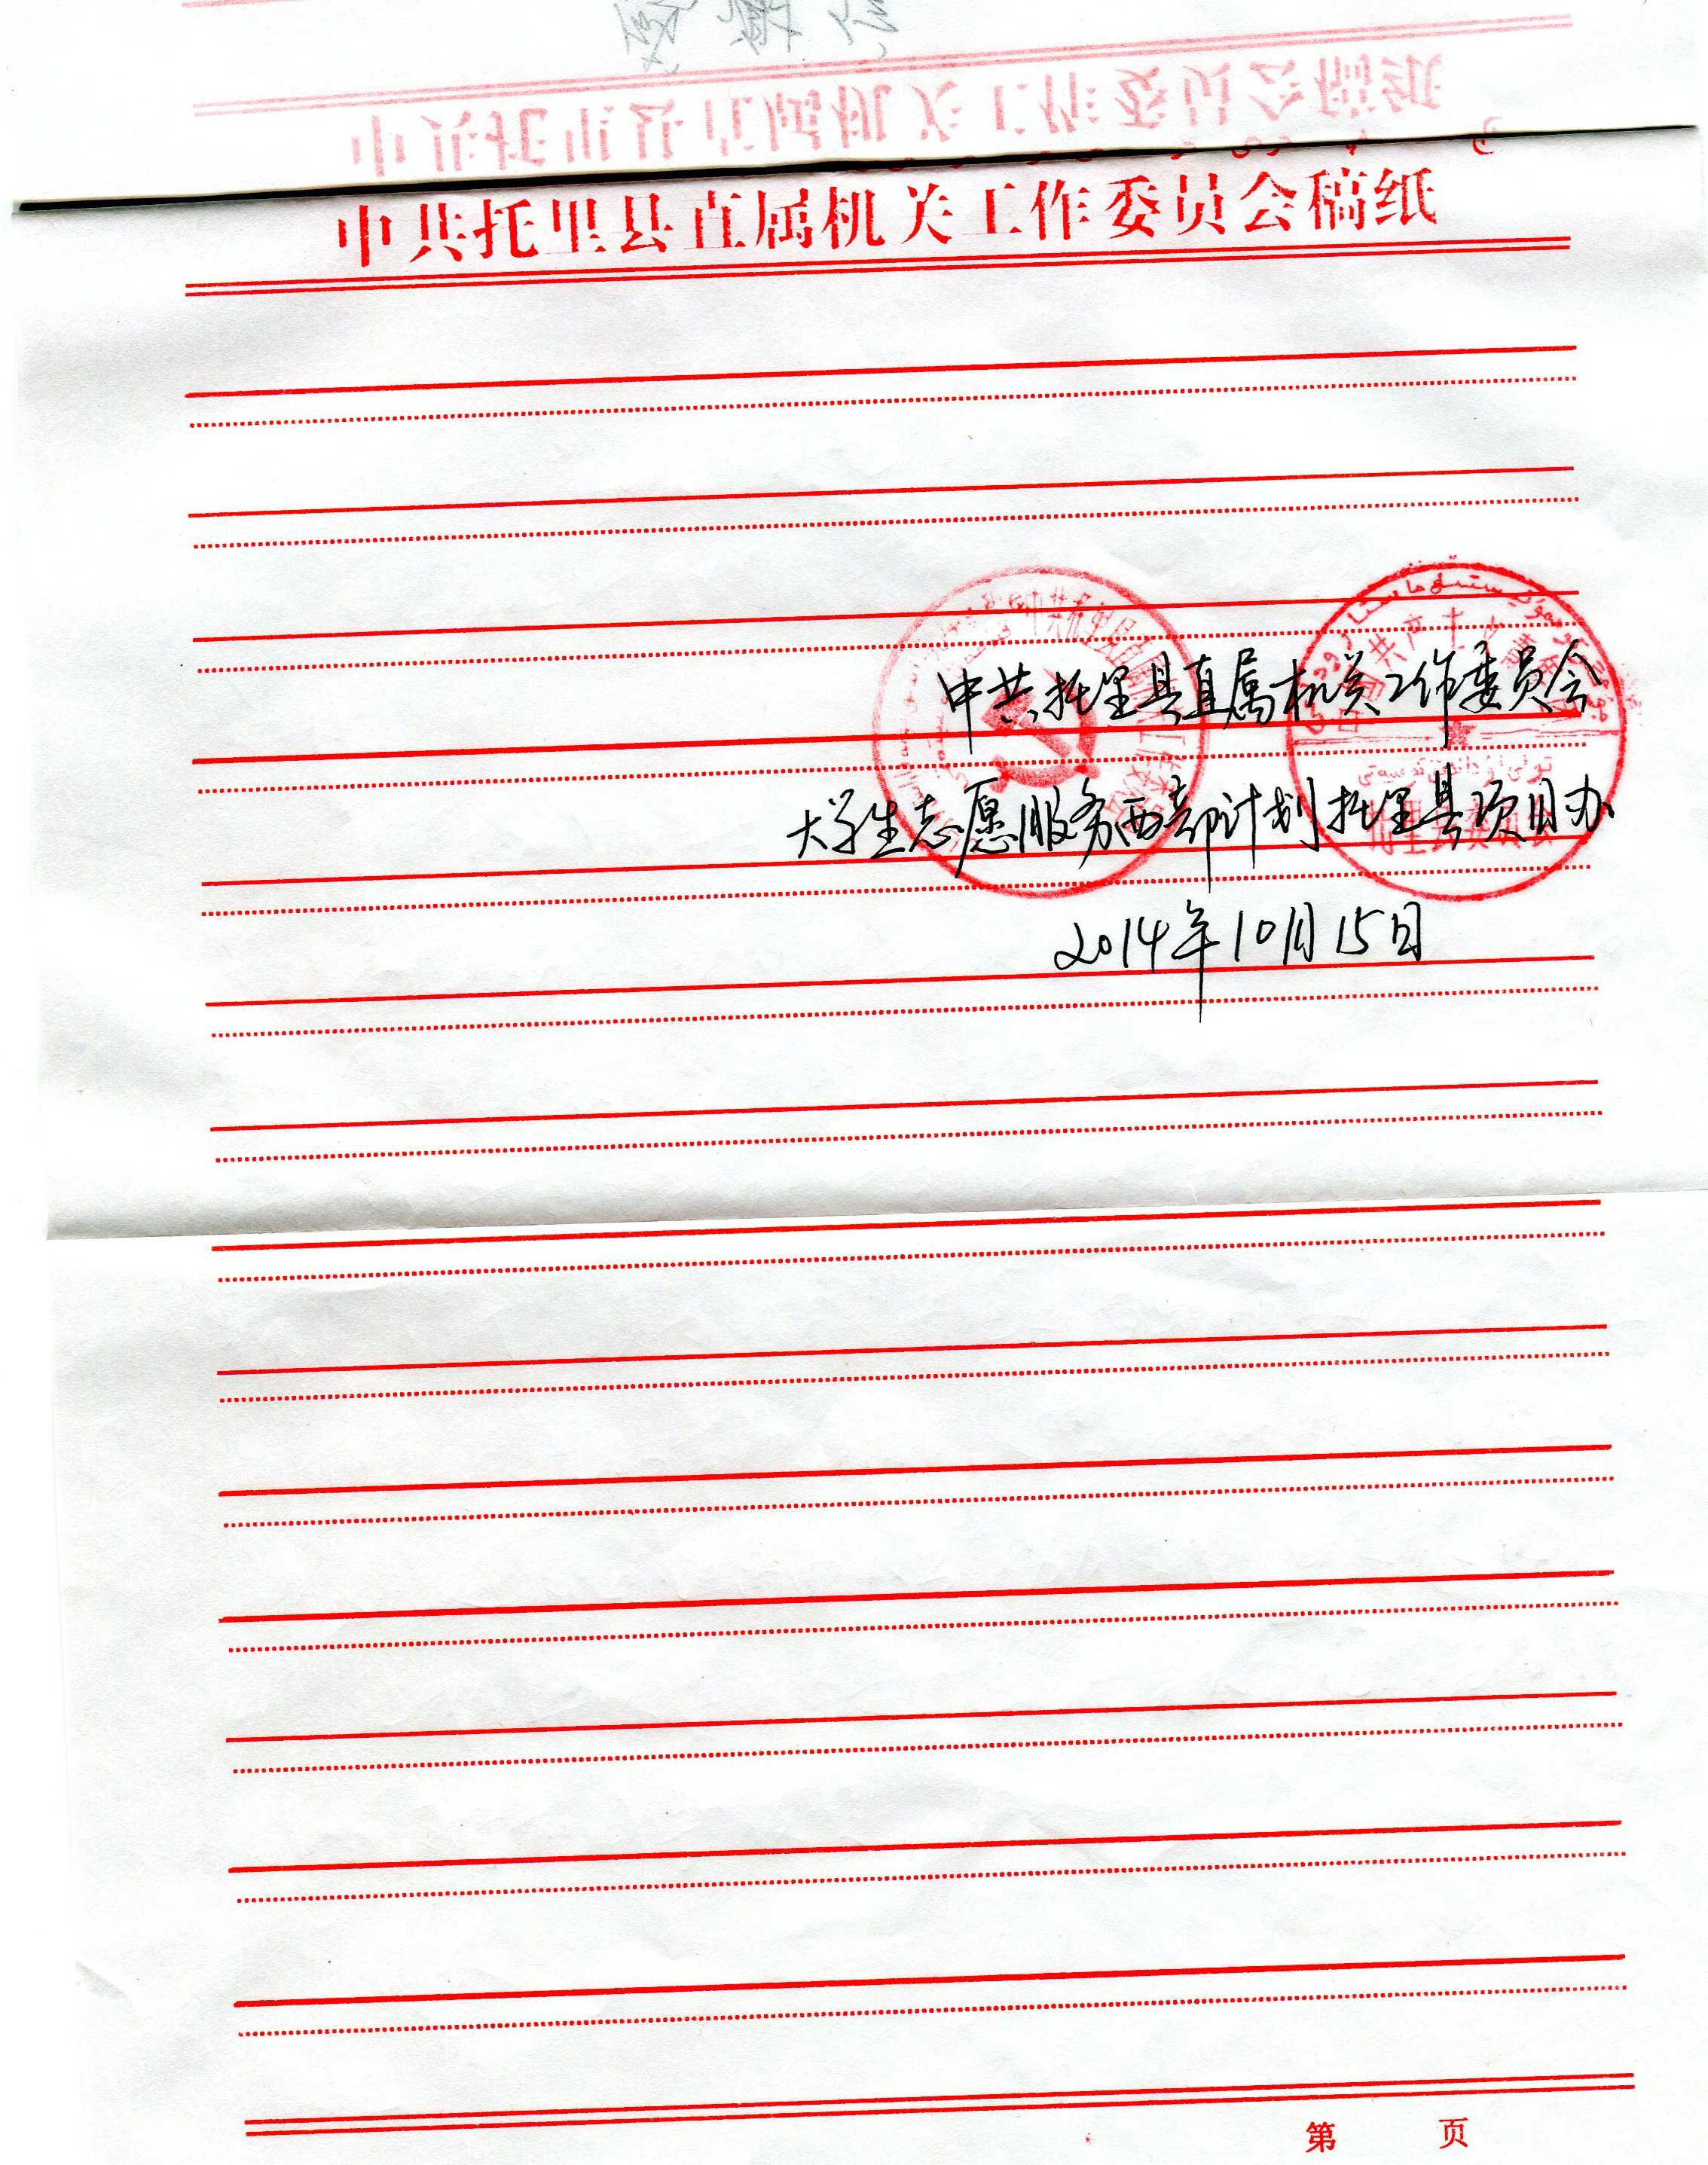 中共托里县直属机关工作委员会稿纸
中共托里县直属机关工作委员会
大学生志愿服务西部计划托里县项目办
2014年10月15日
第 页